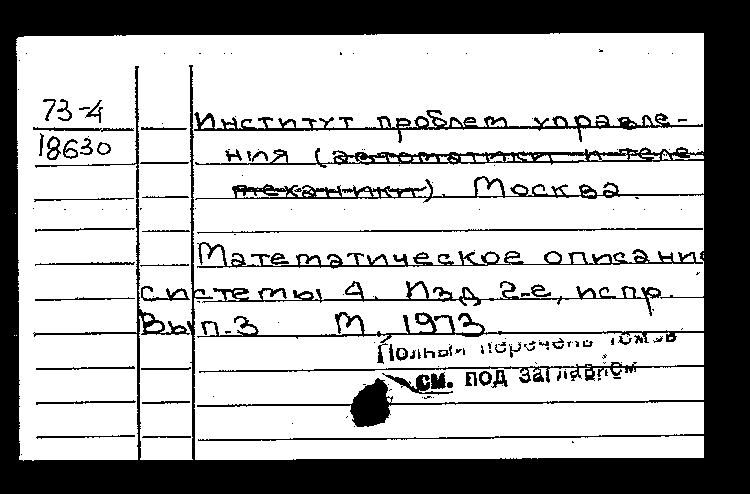 73-4
18630
Институт проблем управле-
ния (автоматики и теле
механики). Москва
Математическое описание
системы 4. Изд. 2-е, испр.
Вып.3 М., 1973.
Полный перечень томов
см. под заглавием